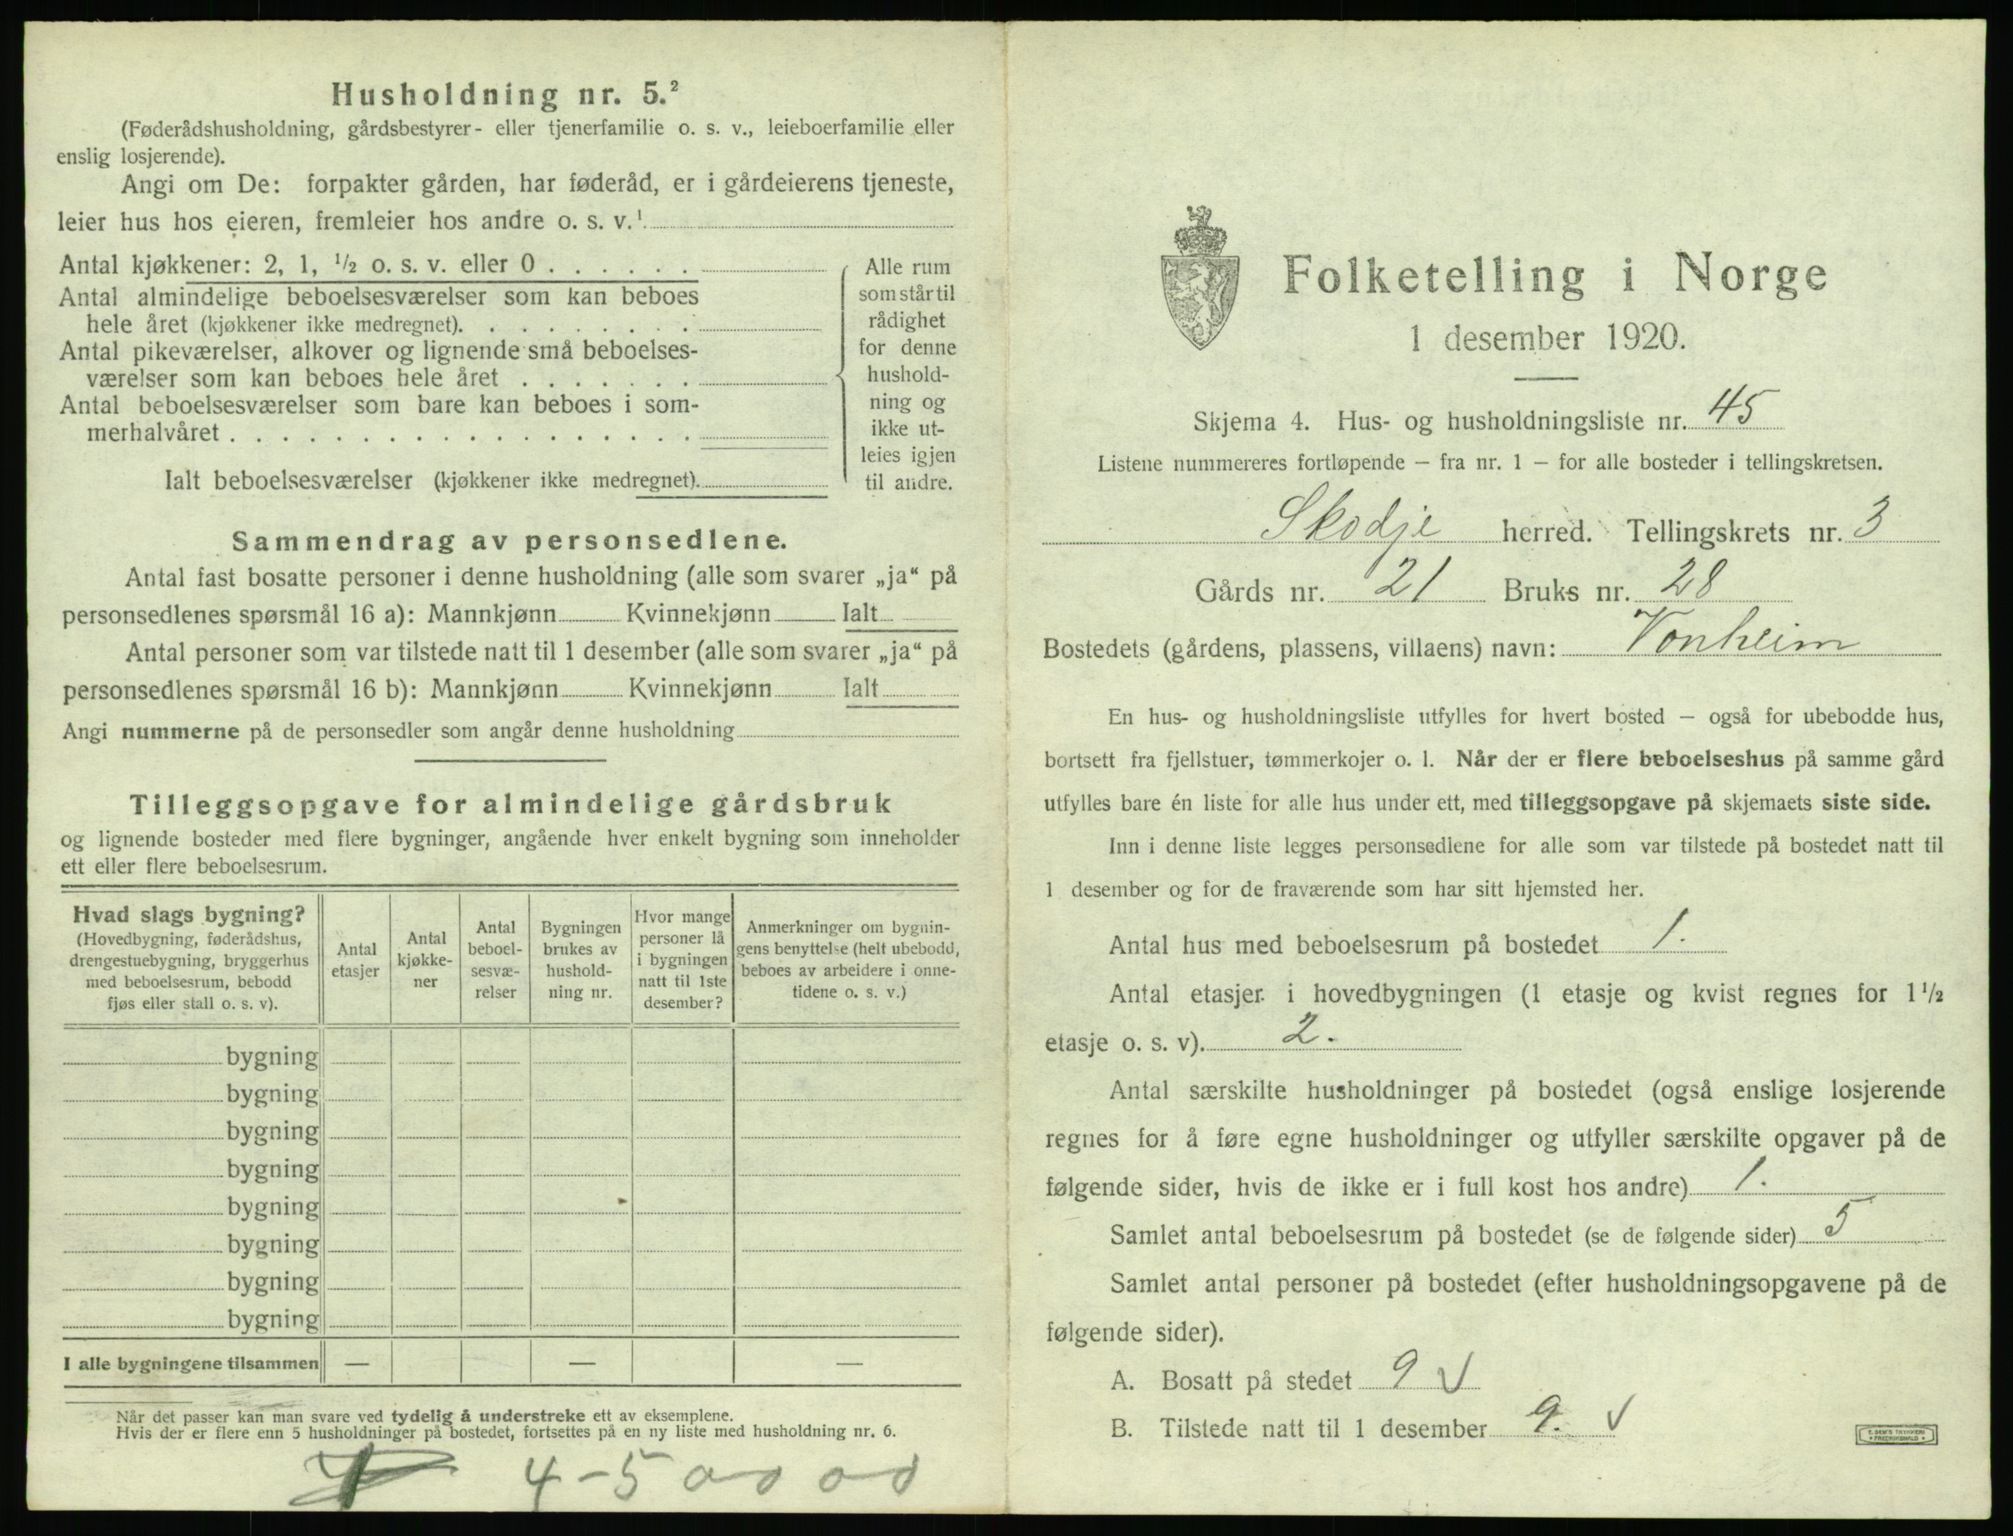 Husholdning nr. 5.²
(Føderådshusholdning, gårdsbestyrer- eller tjenerfamilie o. s. v., leieboerfamilie eller
enslig losjerende).
Angi om De: forpakter gården, har føderåd, er i gårdeierens tjeneste,
leier hus hos eieren, fremleier hos andre o. s. v.¹
Antal kjøkkener: 2, 1, ½ o. s. v. eller 0 . . . . . .
Antal almindelige beboelsesværelser som kan beboes
hele året (kjøkkener ikke medregnet). . . . . . . . .
Antal pikeværelser, alkover og lignende små beboelses-
værelser som kan beboes hele året . . . . . . .
Antal beboelsesværelser som bare kan beboes i som-
merhalvåret . . . . . . . . . . . . . . . . . .
Ialt beboelsesværelser (kjøkkener ikke medregnet).
Alle rum
som står til
rådighet
for denne
hushold-
ning og
ikke ut-
leies igjen
til andre.
Sammendrag av personsedlene.
Antal fast bosatte personer i denne husholdning (alle som svarer „ja“ på
personsedlenes spørsmål 16 a): Mannkjønn Kvinnekjønn Ialt
Antal personer som var tilstede natt til 1 desember (alle som svarer „ja“ på
personsedlenes spørsmål 16 b): Mannkjønn Kvinnekjønn Ialt
Angi nummerne på de personsedler som angår denne husholdning
Tilleggsopgave for almindelige gårdsbruk
og lignende bosteder med flere bygninger, angående hver enkelt bygning som inneholder
ett eller flere beboelsesrum.
Hvad slags bygning?
(Hovedbygning, føderådshus,
drengestuebygning, bryggerhus
med beboelsesrum, bebodd
fjøs eller stall o. s. v).
Antal
etasjer
Antal
kjøkke-
ner
Antal
beboel-
sesvæ-
relser
Bygningen
brukes av
hushold-
ning nr.
Hvor mange
personer lå
i bygningen
natt til 1ste
desember?
Anmerkninger om bygnin-
gens benyttelse (helt ubebodd,
beboes av arbeidere i onne-
tidene o. s. v.)
bygning
bygning
bygning
bygning
bygning
bygning
bygning
bygning
I alle bygningene tilsammen — — —
Når det passer kan man svare ved tydelig å understreke ett av eksemplene.
Hvis der er flere enn 5 husholdninger på bostedet, fortsettes på en ny liste med husholdning nr. 6.
4-5
Folketelling i Norge
1 desember 1920.
Skjema 4. Hus- og husholdningsliste nr. 45
Listene nummereres fortløpende — fra nr. 1 — for alle bosteder i tellingskretsen.
Skodje herred. Tellingskrets nr. 3
Gårds nr. 21 Bruks nr. 28
Bostedets (gårdens, plassens, villaens) navn: Vonheim
En hus- og husholdningsliste utfylles for hvert bosted — også for ubebodde hus,
bortsett fra fjellstuer, tømmerkojer o. l. Når der er flere beboelseshus på samme gård
utfylles bare én liste for alle hus under ett, med tilleggsopgave på skjemaets siste side.
Inn i denne liste legges personsedlene for alle som var tilstede på bostedet natt til
1 desember og for de fraværende som har sitt hjemsted her.
Antal hus med beboelsesrum på bostedet 1.
Antal etasjer i hovedbygningen (1 etasje og kvist regnes for 1½
etasje o. s. v). 2.
Antal særskilte husholdninger på bostedet (også enslige losjerende
regnes for å føre egne husholdninger og utfyller særskilte opgaver på de
følgende sider, hvis de ikke er i full kost hos andre) 1.
Samlet antal beboelsesrum på bostedet (se de følgende sider) 5
Samlet antal personer på bostedet (efter husholdningsopgavene på de
følgende sider).
A. Bosatt på stedet 9 √
B. Tilstede natt til 1 desember 9. √